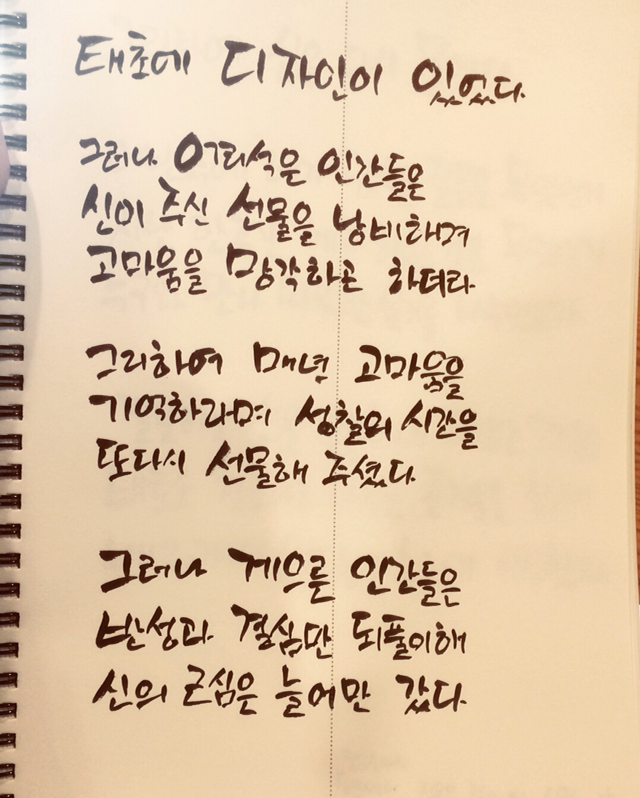 태초에 디자인이 있었다.
그러나 어리석은 인간들은
신이 주신 선물을 낭비하며
고마움을 망각하곤 하더라
그리하여 매년 고마움을
기억하라며 성찰의 시간을
또다시 선물해 주셨다.
그러나 게으른 인간들은
반성과 결심만 되풀이해
신의 근심은 늘어만 갔다.